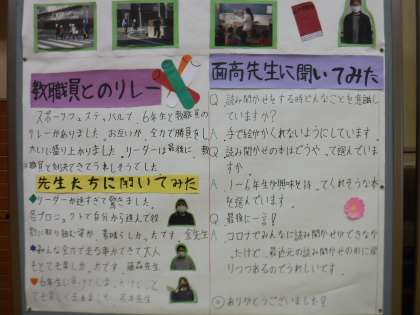 教職員とのリレー
スポーツフェスティバルで、6年生と教職員の
リレーがありました。お互いが、全力で勝負をし、
大いに盛り上がりました。リーダーは最後に、教
職員と対決できてうれしそうでした。
先生たちに聞いてみた
リーダーが速すぎて驚きました。
各プロジェクトで自分から進んで役
割に取り組む姿が、素晴らしかったです。
みんな全力で走る事ができて大人
もとても楽しかったです。
6年生に
面高先生に聞いてみた
Q 読み聞かせをする時どんなことを意識し
ていますか?
A 手で絵がかくれないようにしています。
Q 読み聞かせの本はどうやって選んでいま
すか。
A 1〜6年生が興味を持ってくれそうな本
を選んでいます。
Q 最後に一言!
A コロナでみんなに読み聞かせができなか
ったけど、最近元の読み聞かせの形に戻
りつつあるのでうれしいです。
ありがとうございました!